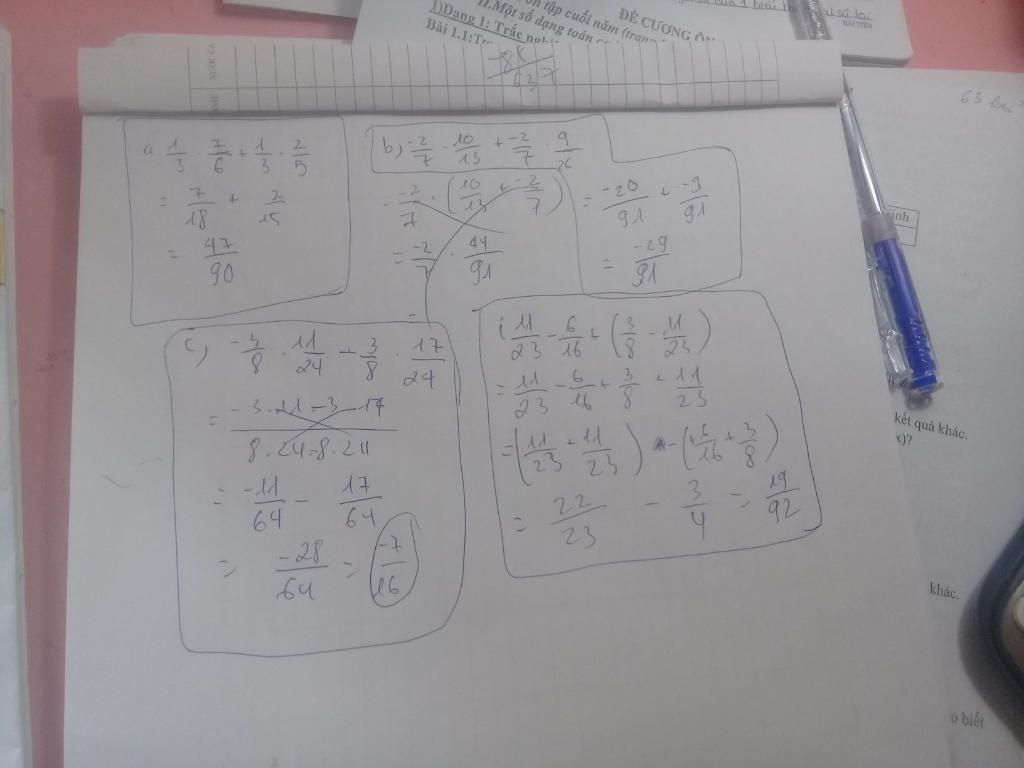 ĐỀ CƯƠNG ÔN
ôn tập cuối năm
II.Một số dạng toán
1)Dạng 1: Trắc nghiệm
Bài 1.1:
HẢI TIẾN
63
a 1/3 · 7/6 + 1/3 · 2/5
= 7/18 + 2/15
= 47/90
b) -2/7 · 10/13 + -2/7 · 9/26
= -2/7 · (10/13 + -2/7)
= -2/7 · 44/91
=
= -20/91 + -9/91
= -29/91
c) -3/8 · 11/24 - 3/8 · 17/24
= -3·11-3·17/8·24-8·24
= -11/64 - 17/64
= -28/64 = -7/16
i 11/23 - 6/16 + (3/8 - 11/23)
= 11/23 - 6/16 + 3/8 + 11/23
= (11/23 + 11/23) - (+6/16 + 3/8)
= 22/23 - 3/4 = 19/92
kết quả khác.
x)?
khác.
o biết